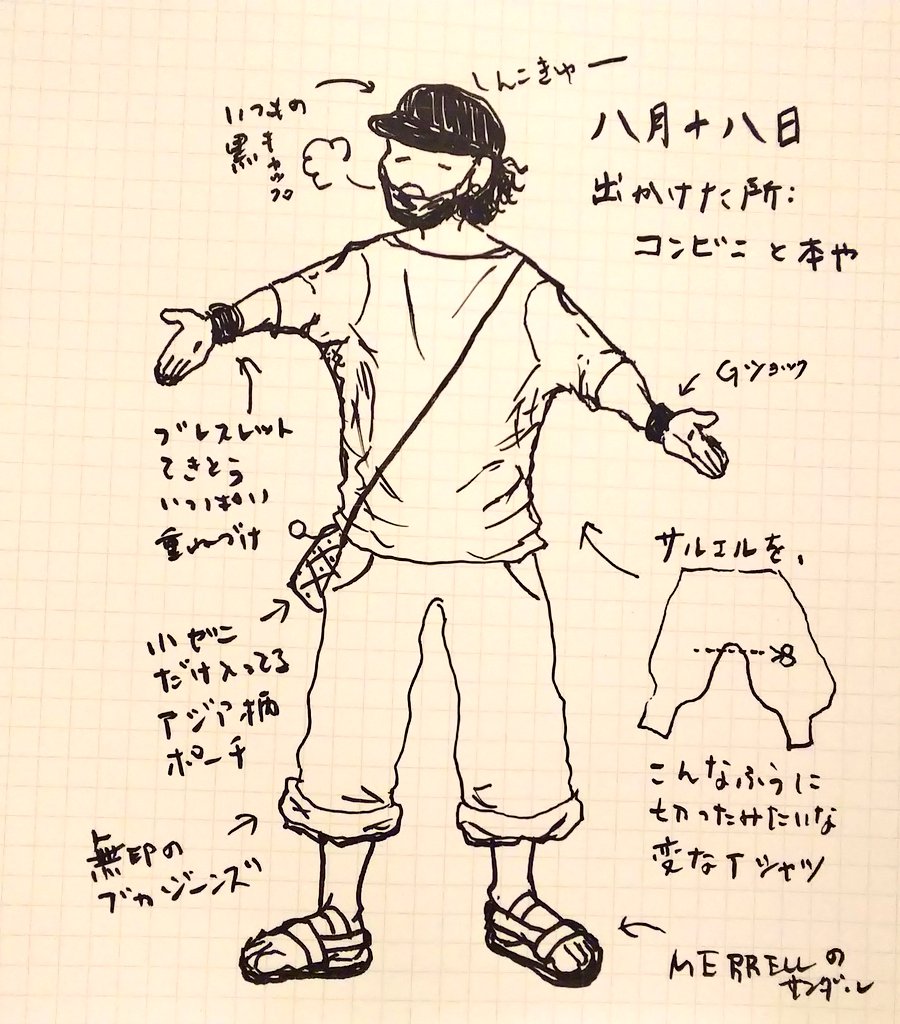 しんこきゅー
いつもの
黒キャップ
八月十八日
出かけた所:
コンビニと本や
Gショック
ブレスレット
てきとう
いっぱい
重ねづけ
サルエルを、
こんなふうに
切ったみたいな
変なTシャツ
小ぜに
だけ入ってる
アジア柄
ポーチ
無印の
ブカジーンズ
MERRELLの
サンダル